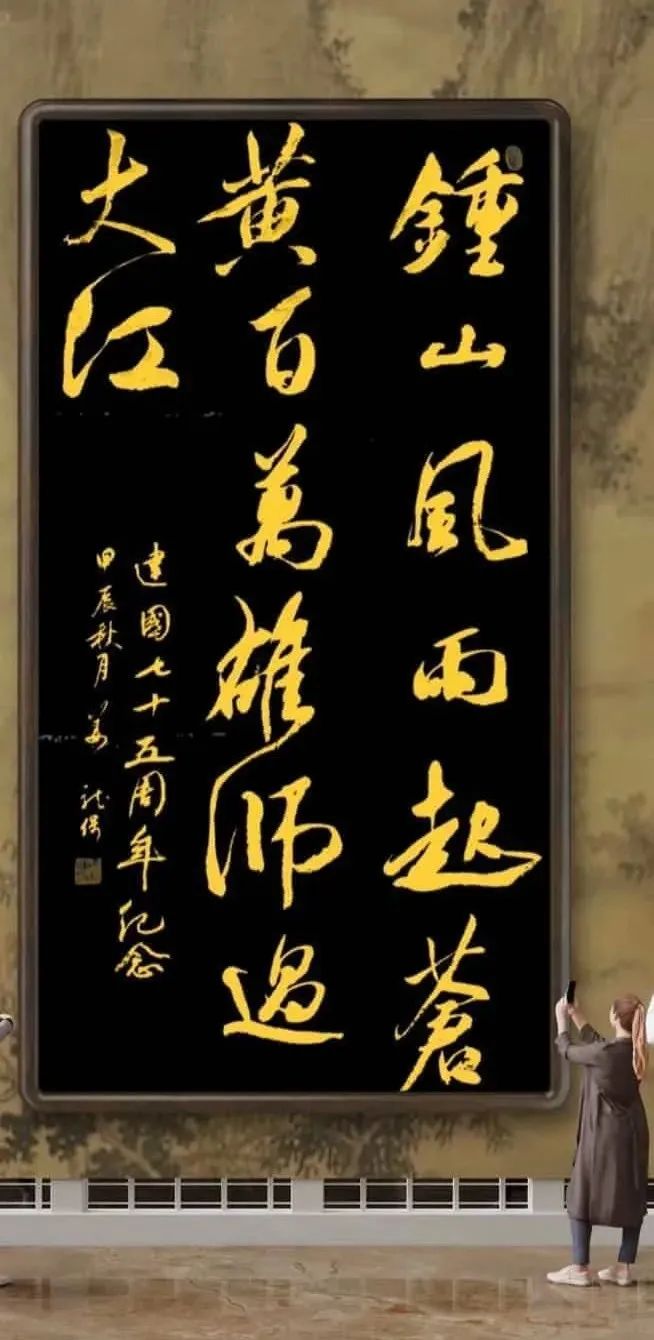 鍾山風雨起蒼
黄百萬雄师過
大江
建國七十五周年纪念
甲辰秋月